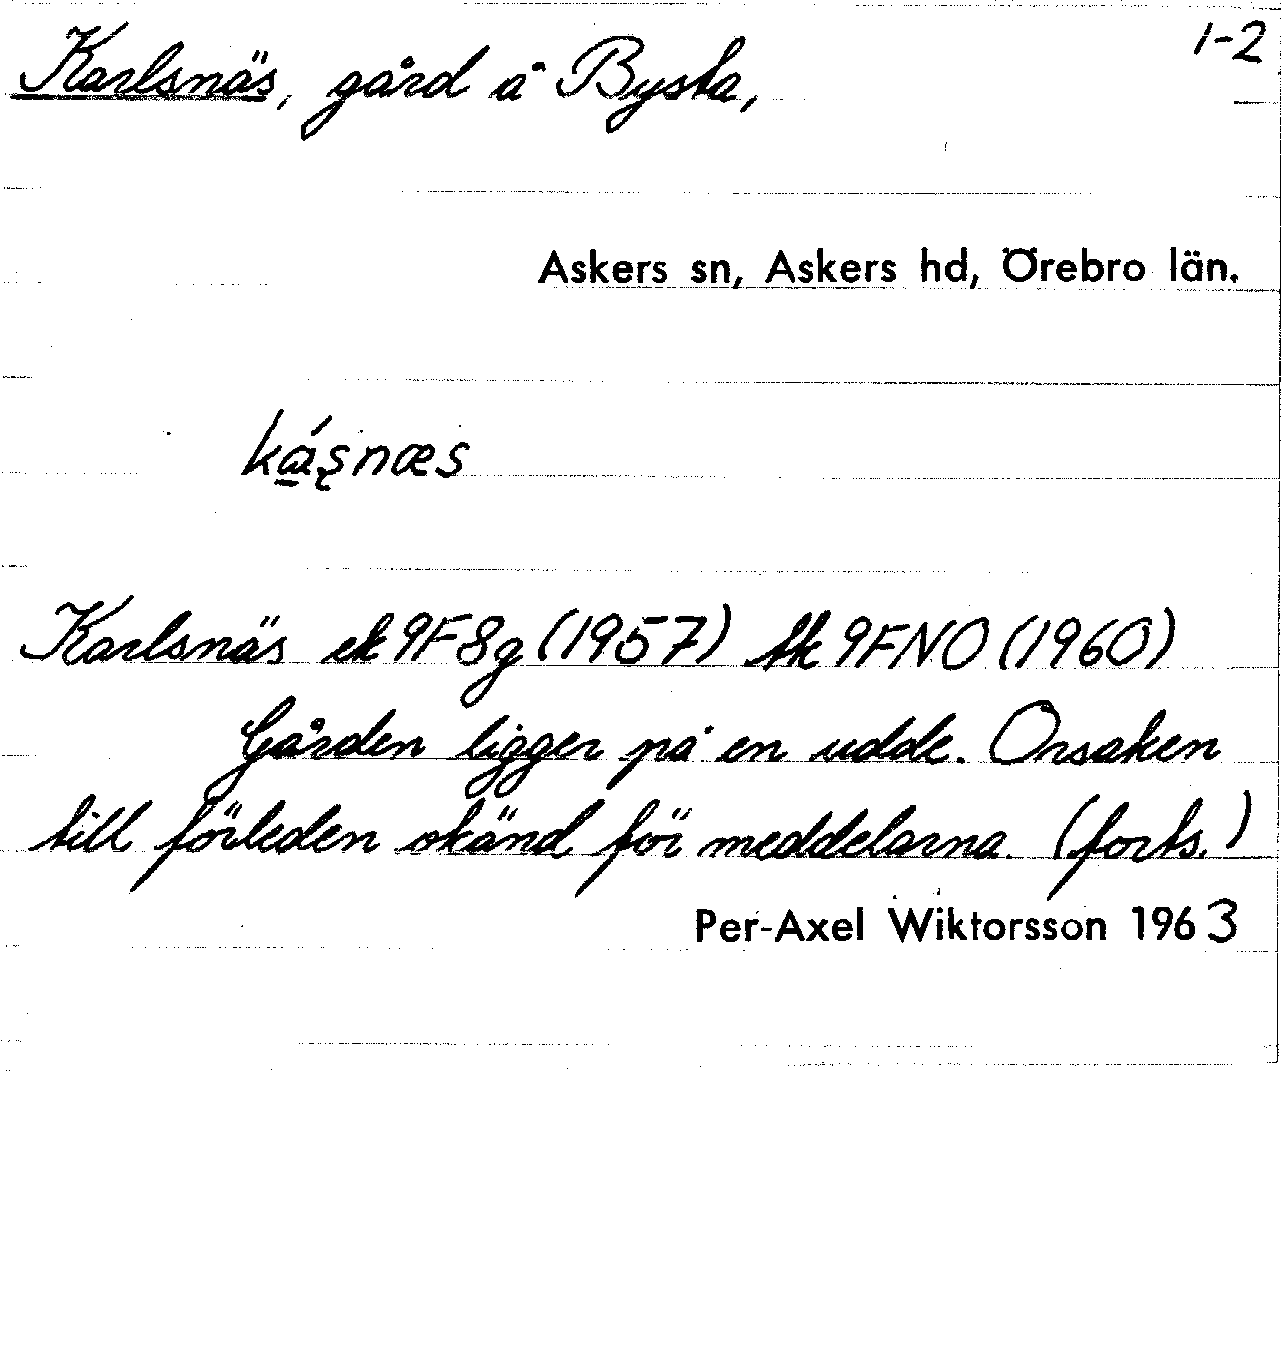 Karlsnäs, gård å Bysta, 1-2
Askers sn, Askers hd, Örebro län.
ká̲s̨næs
Karlsnäs ek 9F8g (1957) tk 9FNO (1960)
Gården ligger på en udde. Orsaken
till förleden okänd för meddelarna. (forts.)
Per-Axel Wiktorsson 1963